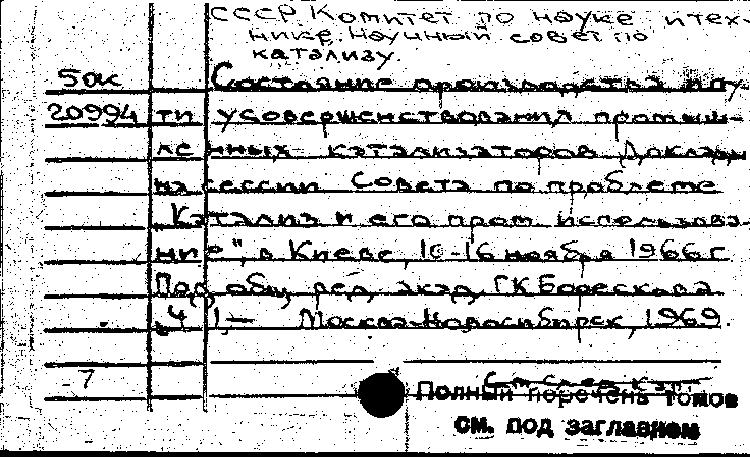 СССР. Комитет по науке и тех-
нике. Научный совет по
катализу.
5ок Состояние производства и пу-
20994 ти усовершенствования промыш-
ленных катализаторов. Доклады
на сессии Совета по проблеме
"Катализ и его пром. использова-
ние", в Киеве, 10-16 ноября 1966 г.
Под общ. ред. акад. Г.К. Борескова.
Ч 1,— Москва-Новосибирск, 1969.
7 См след карт
Полный перечень томов
см. под заглавием